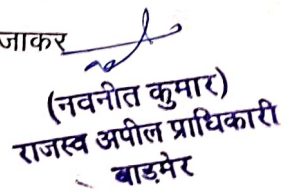 जाकर
(नवनीत कुमार)
राजस्व अपील प्राधिकारी
बाड़मेर